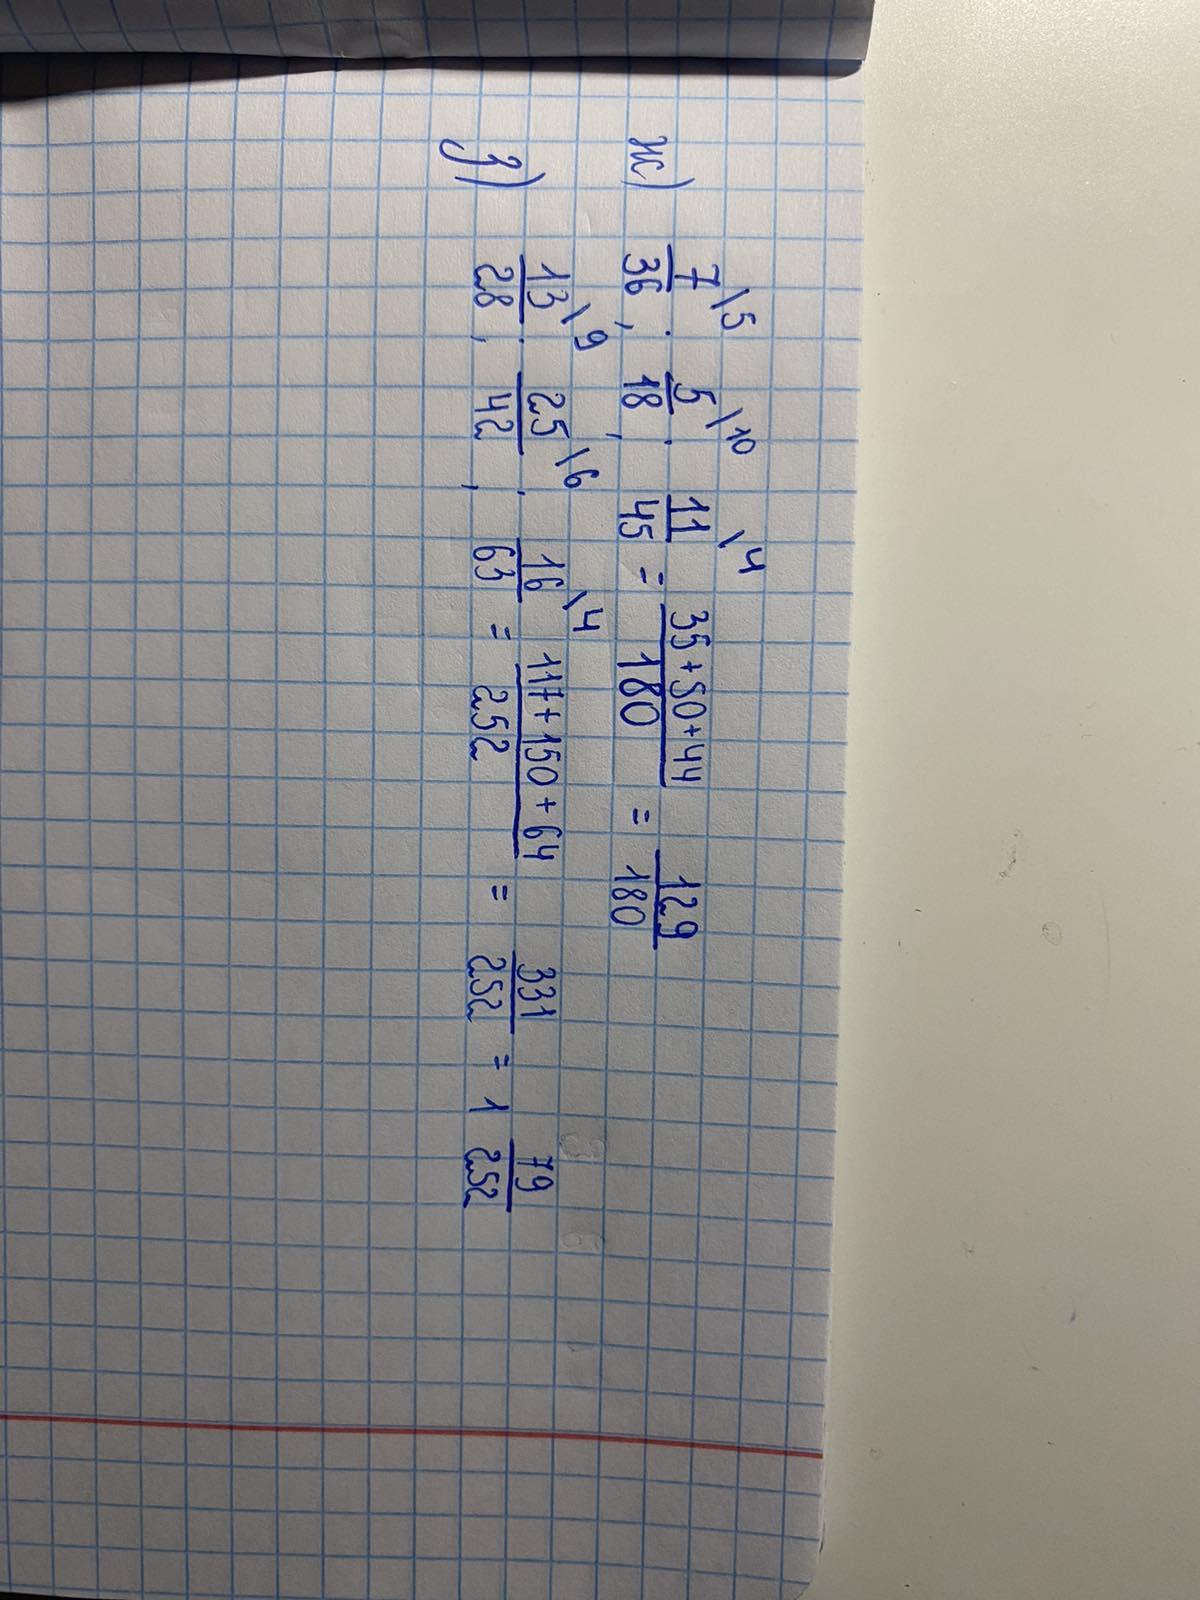 ж) 7/36 \5 ; 5/18 \10 ; 11/45 \4 = 35+50+44/180 = 129/180
з) 13/28 \9 ; 25/42 \6 ; 16/63 \4 = 117+150+64/252 = 331/252 = 1 79/252